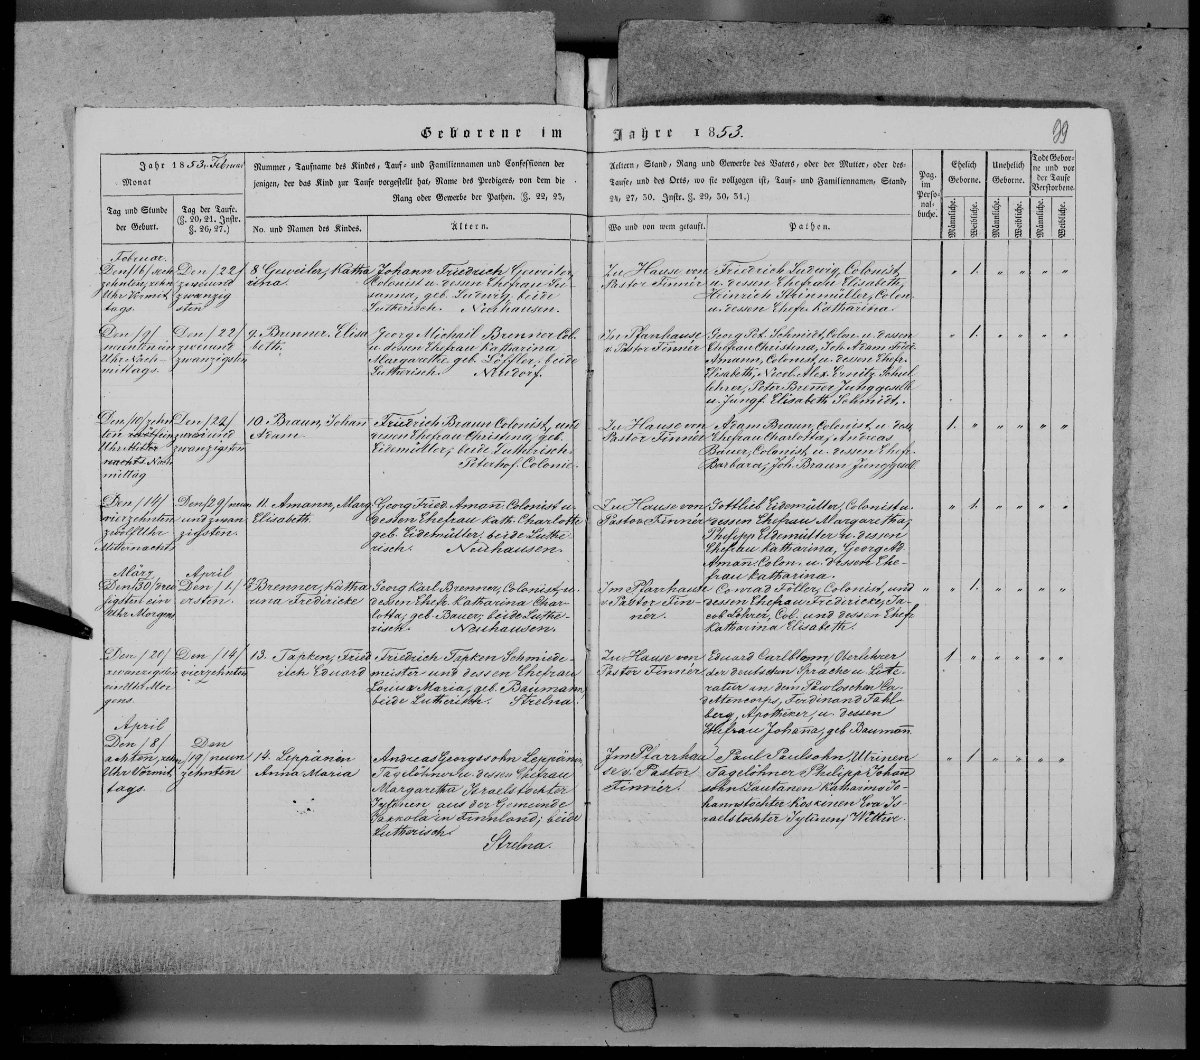 Geborene im Jahre 1853.
99
Jahr 1853. Februar
Monat
Tag und Stunde
der Geburt.
Tag der Taufe.
(§. 20, 21. Instr.
§. 26, 27.)
Nummer, Taufname des Kindes, Tauf- und Familiennamen und Confessionen der
jenigen, der das Kind zur Taufe vorgestellt hat, Name des Predigers, von dem die
Rang oder Gewerbe der Pathen. (§. 22, 23,
No. und Namen des Kindes.
Ältern.
Aeltern, Stand, Rang und Gewerbe des Vaters, oder der Mutter, oder des-
Taufe, und des Orts, wo sie vollzogen ist, Tauf- und Familiennamen, Stand,
24, 27, 30. Instr. §. 29, 30, 31.)
Wo und von wem getauft.
Pathen.
Pag.
im
Perso-
nal-
buche.
Ehelich
Geborne.
Unehelich
Geborne.
Todt Gebor-
ne und vor
der Taufe
Verstorbene.
Männliche.
Weibliche.
Männliche.
Weibliche.
Männliche.
Weibliche.
Februar.
Den /16/
zehnten, zehn
Uhr Vormit-
tags.
Den /22/
zweiund
zwanzig
sten
8. Geweiler, Katha
rina.
Johann Friedrich Geweiler,
Colonist u. dessen Ehefrau Su-
sanna, geb. Ludwig, beide
Lutherisch. Neuhausen.
Zu Hause von
Pastor Finnér
Friedrich Ludwig, Colonist,
u. dessen Ehefrau Elisabeth,
Heinrich Steinmüller, Colon.
u. dessen Ehefr. Katharina.
" 1. " " " "
Den /9/
neunten ein
Uhr Nach-
mittags.
Den /22/
zweiund
zwanzigsten
9. Brenner. Elisa
beth.
Georg Michail Brenner Col.
u. dessen Ehefrau Katharina
Margarethe geb. Löffler, beide
Lutherisch. Neudorf.
In Pfarrhause
v. Pastor Finnér.
Georg Pet. Schmidt, Colon. u. dessen
Ehefrau Christina, Joh. Adam Fried.
Amann, Colonist, u. dessen Ehefr.
Elisabeth, Nicol. Alex. Ernitz Schul-
lehrer, Peter Brenner Junggesell
u. Jungf. Elisabeth Schmidt.
" 1. " " " "
Den /10/ zehn
ten
Uhr
Nach-
mittag
Den /22/
zweiund
zwanzigsten
10. Braun, Johann
Adam.
Friedrich Braun Colonist, und
dessen Ehefrau Christina, geb.
Eidemüller; beide Lutherisch.
Peterhof. Colonie.
Zu Hause von
Pastor Finnér
Adam Braun, Colonist, u. dess
Ehefrau Charlotta; Andreas
Bauer, Colonist, u. dessen Ehefr.
Barbara; Joh. Braun Junggesell
1. " " " " "
Den /14/
vierzehnten
zwölf Uhr
Mitternachts
Den /29/ neun
undzwan
zigsten.
11. Amann, Marg
Elisabeth.
Georg Fried. Amañ Colonist u.
dessen Ehefrau Kath. Charlotte
geb. Eidemüller, beide Luthe-
risch. Neuhausen.
Zu Hause von
Pastor Finnér
Gottlieb Eidemüller, Colonist u.
dessen Ehefrau Margaretha;
Philipp Eidemüller u. dessen
Ehefrau Katharina, Georg Ad.
Amañ Colon. u. dessen Ehe-
frau Katharina.
" 1. " " " "
März
Den /30/ drei
zigsten ein
Uhr Morgens
April
Den /1./
ersten.
Brenner, Katha
rina Fredericke
Georg Karl Brenner, Colonist, u.
dessen Ehefr. Katharina Char-
lotta; geb. Bauer, beide Luthe-
risch. Neuhausen.
Im Pfarrhause
v. Pastor Fin-
nér.
Conrad Föller, Colonist, und
dessen Ehefrau Fredericke, Ja-
cob Löhrer, Col. und dessen Ehefr.
Katharina Elisabeth.
" " 1. " " " "
Den /20/
zwanzigsten
ein Uhr Mor-
gens.
Den /14/
vierzehnten
13. Tapken, Fried
rich Eduard
Friedrich Tapken Schmiede-
meister und dessen Ehefrau
Louise Maria, geb. Baumann,
beide Lutherisch. Strelna.
Zu Hause von
Pastor Finnér
Eduard Carlblom, Oberlehrer
der deutschen Sprache u. Lite-
ratur in dem Pawloschen Ca-
dettencorps, Ferdinand Fahl-
berg, Apotheker, u. dessen
Ehefrau Johaña, geb. Baumañ
1 " " " " "
April
Den /8/
achten, zehn
Uhr Vormit-
tags.
Den
/19/ neun
zehnten
14. Leppänen
Anna Maria
Andreas Georgssohn Leppänen,
Tagelöhner u. dessen Ehefrau
Margaretha Israelstochter
Tylinen aus der Gemeinde
Jaakola in Finnland; beide
Lutherisch.
Strelna.
Im Pfarrhau
se v. Pastor
Finnér.
Paul Paulsohn, Utrinen
Tagelöhner Philipp Johan
sohn Lautanen Katharina Jo-
hannstochter Koskinen Eva Is-
raelstochter Tylinen, Wittwe.
" 1 " " " "